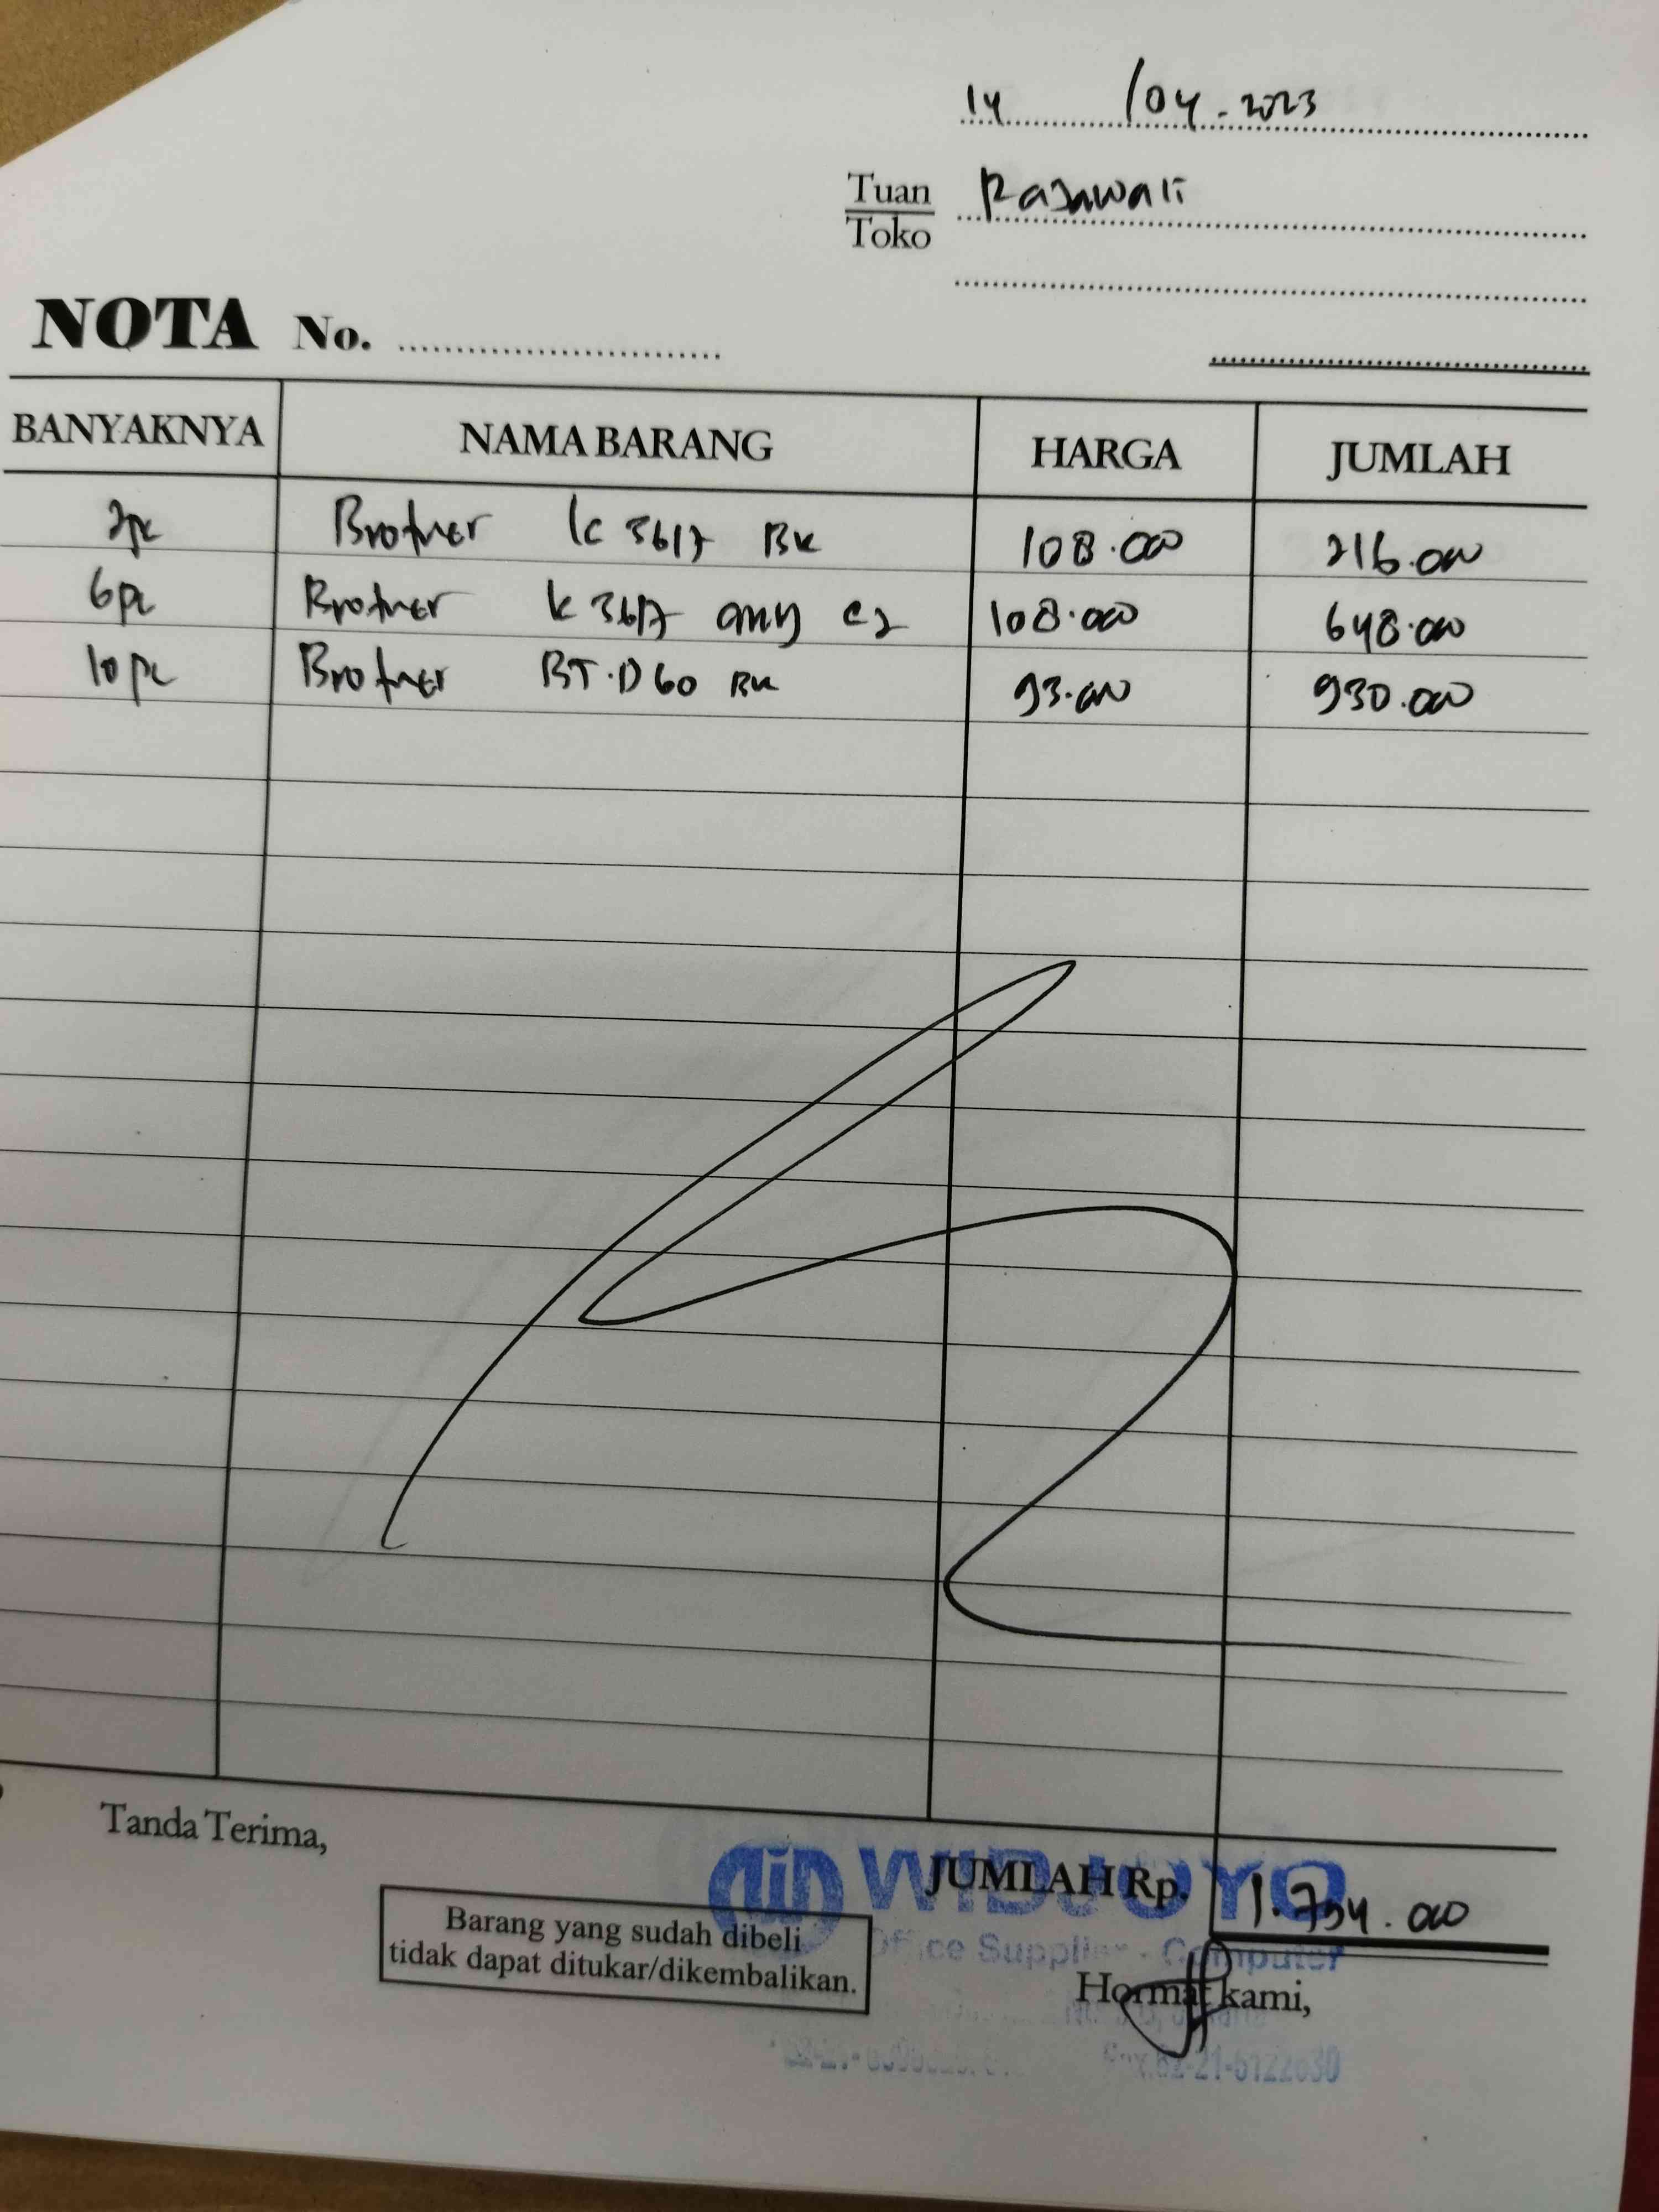 14 /04-2023
Tuan Rajawali
Toko
NOTA No.
BANYAKNYA NAMA BARANG HARGA JUMLAH
2pc Brother LC 3617 BK 108.000 216.000
6pc Brother LC 3617 CMY 108.000 648.000
10pc Brother BT.D60 BK 93.000 930.000
Tanda Terima,
WIDJOYO
JUMLAH Rp. 1.794.000
Barang yang sudah dibeli
tidak dapat ditukar/dikembalikan.
Office Supplies - Computer
Hormat kami,